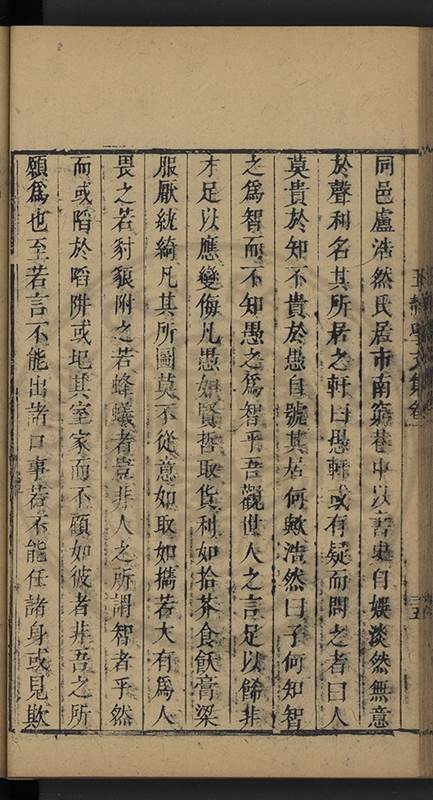 同邑盧浩然氏居市南窮巷中以書史自娛淡然無意
於聲利名其所居之軒曰愚軒或有疑而問之者曰人
莫貴於知不貴於愚自號其居何歟浩然曰子何知智
之為智而不知愚之為智乎吾觀世人之言足以餙非
才足以應變侮凡愚如賢哲取貨利如拾芥食飫膏粱
服厭紈綺凡其所圖莫不從意如取如攜若大有為人
畏之若豺狼附之若蜂蟻者豈非人之所謂智者乎然
而或陷於陷阱或圯其室家而不顧如彼者非吾之所
願為也至若言不能出諸口事若不能任諸身或見欺
文集卷
五